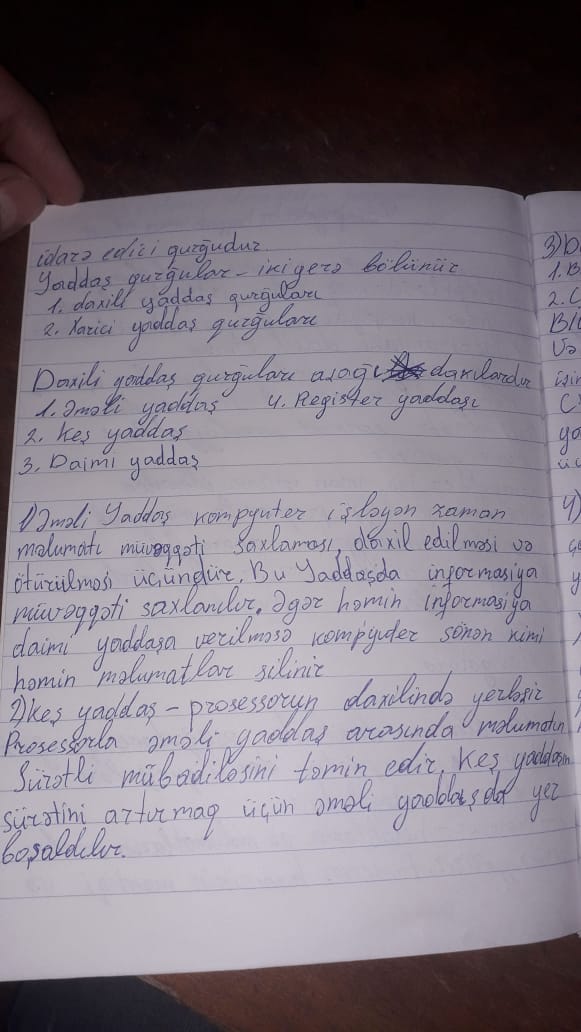 idarə edici qurğudur.
Yaddaş qurğular – iki yerə bölünür
1. daxili yaddaş qurğuları
2. Xarici yaddaş qurğuları
Daxili yaddaş qurğuları aşağı dakılardır
1. Əməli yaddaş 4. Register yaddaşı
2. Keş yaddaş
3. Daimi yaddaş
1) Əməli Yaddaş kompyuter işləyən zaman
məlumatı müvəqqəti saxlaması, daxil edilməsi və
ötürülməsi üçündür. Bu Yaddaşda informasiya
müvəqqəti saxlanılır. Əgər həmin informasiya
daimi yaddaşa verilməsə kompyuter sönən kimi
həmin məlumatlar silinir
2) Keş yaddaş – prosessorun daxilində yerləşir
Prosessorla əməli yaddaş arasında məlumatın
Sürətli mübadiləsini təmin edir. Keş yaddaşın
sürətini artırmaq üçün əməli yaddaşda yer
boşaldılır.
3) D
1. B
2. C
və
4)